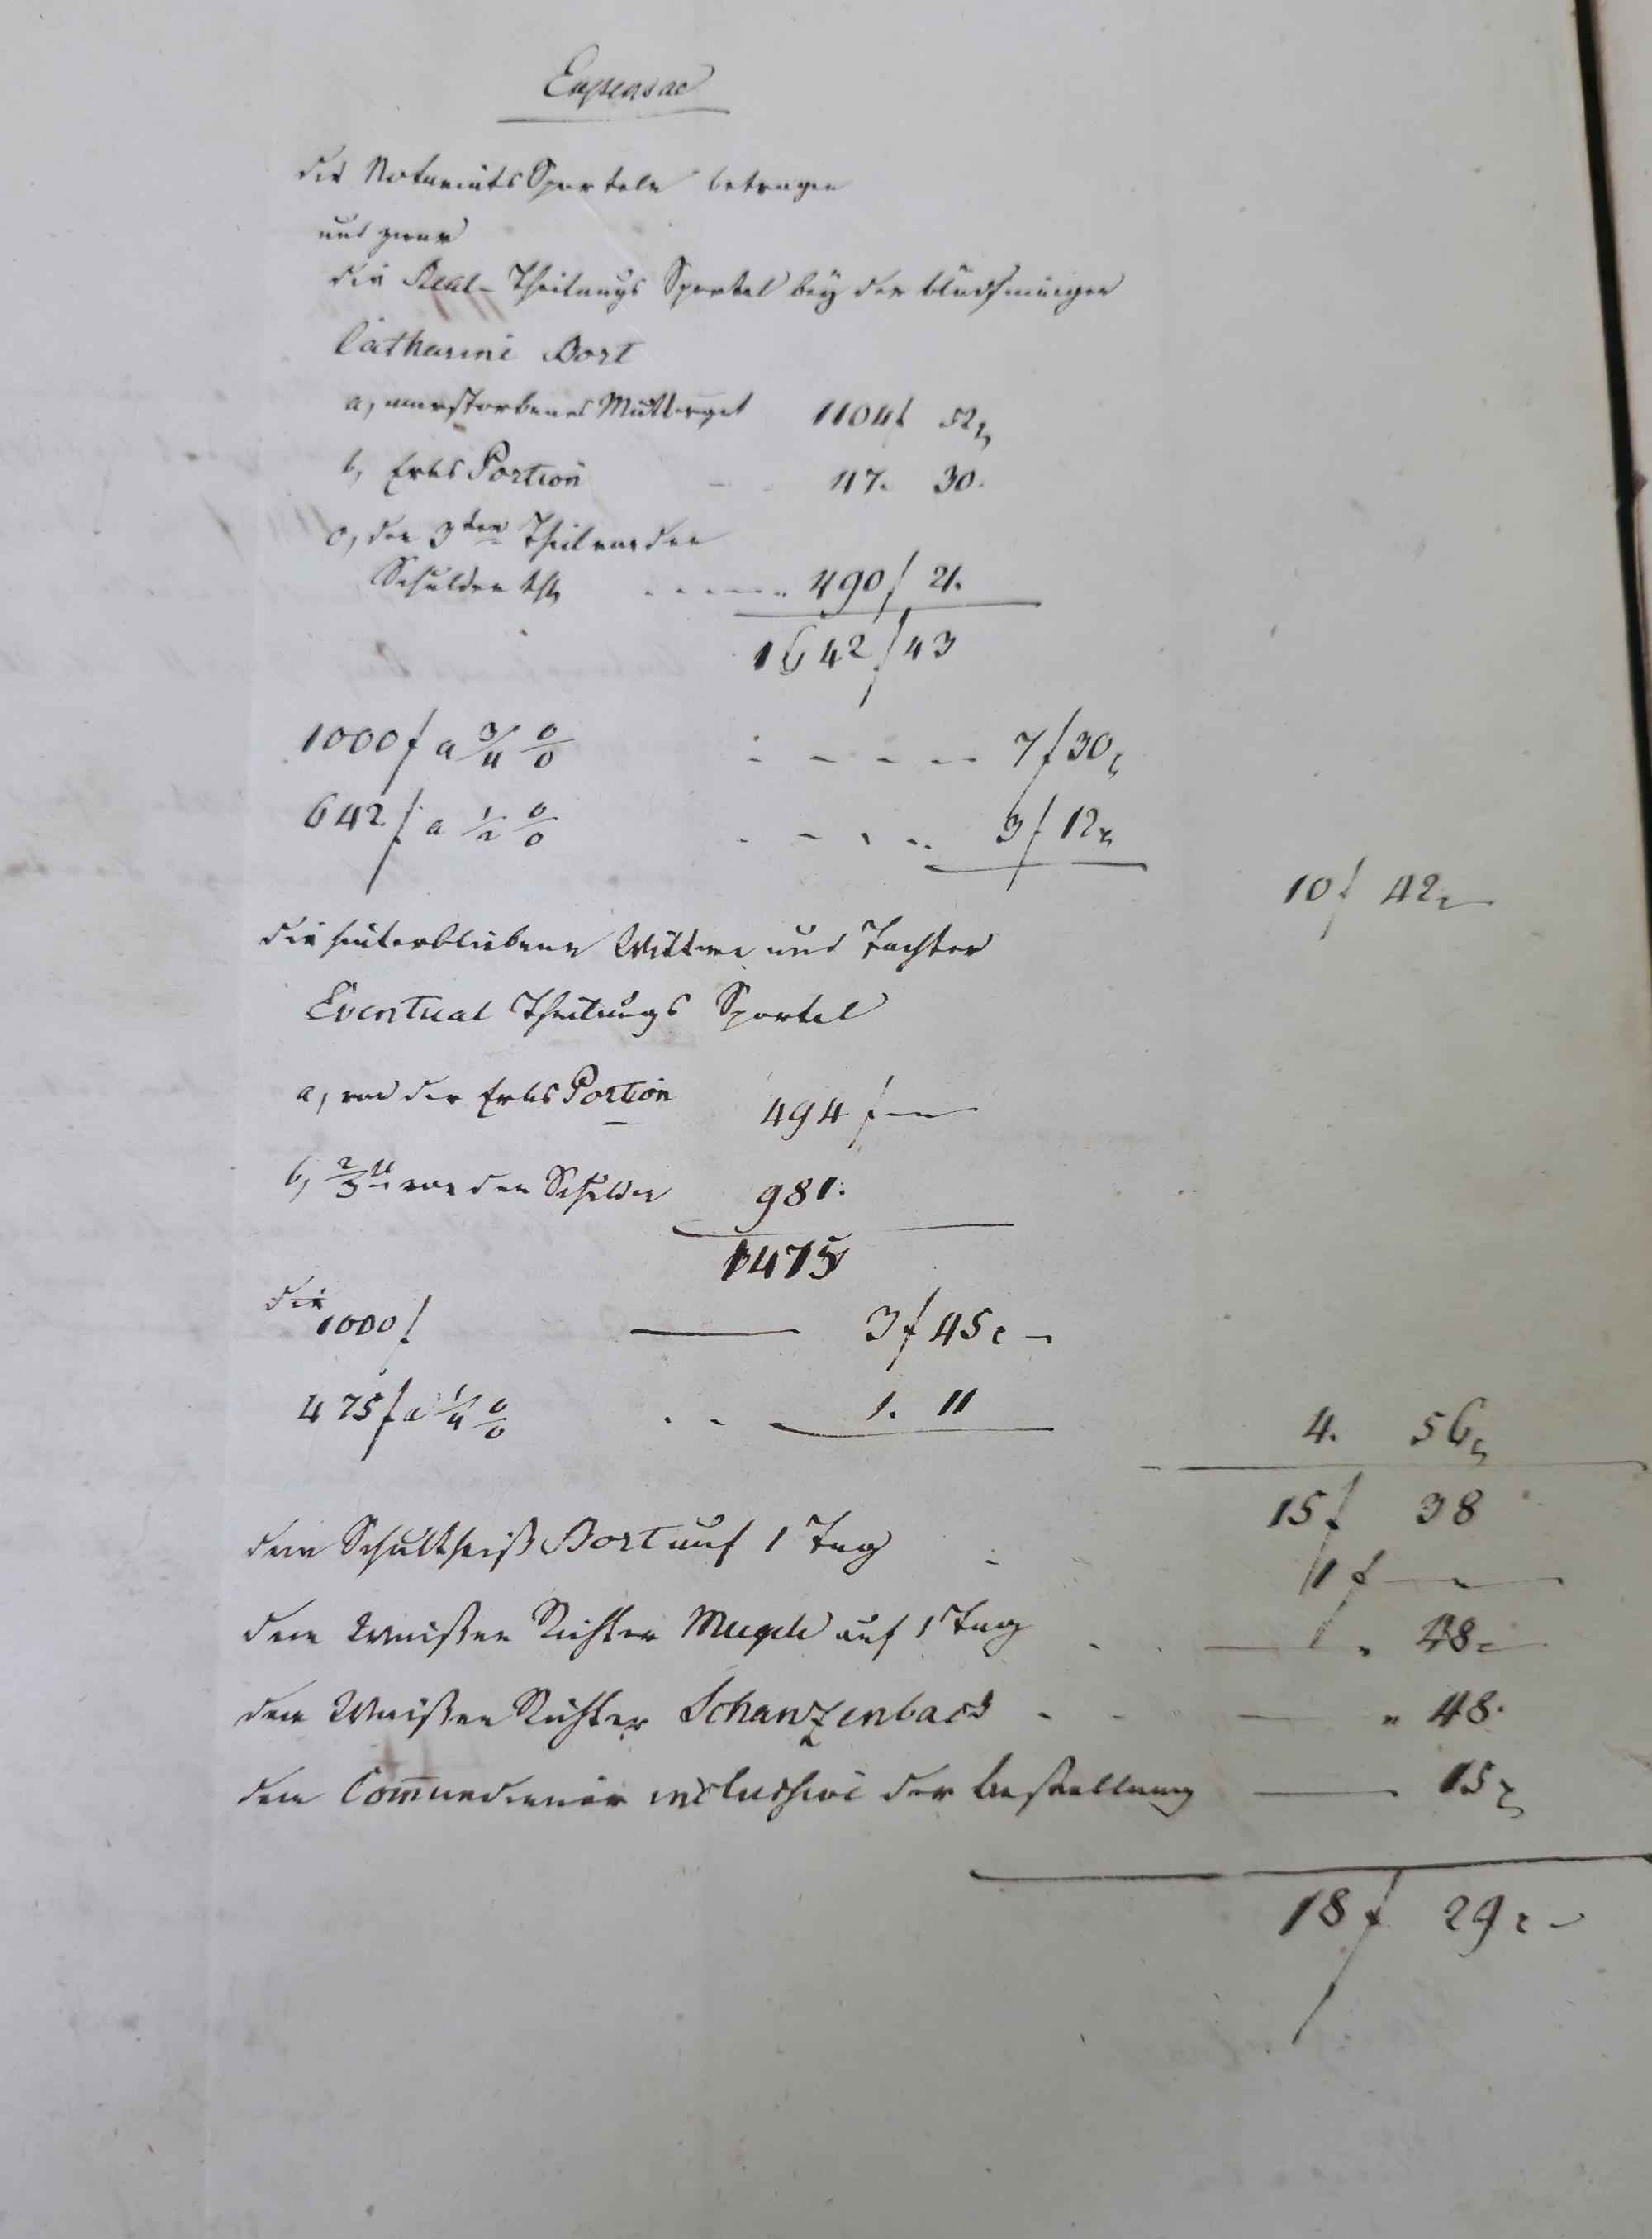 Expensae
Die Notariats Sporteln betragen
und zwar
die Real-Theilungs Sportel bey der blödsinnigen
Catharine Dort
a, anerstorbenes Muttergut 1104 f 52 x
b, Erbs Portion 47. 30.
c, den 3ten Theil von den
Schulden ... 490 f 21.
1642 f 43
1000 f a 3/4 0/0 7 f 30 x
642 f a 1/2 0/0 3 f 12 x
10 f 42 x
die hinterbliebene Wittwe und Tochter
Eventual Theilungs Sportel
a, von der Erbs Portion 494 f —
b, 2/3tl von den Schulden 981.
1475
die
1000 f — 3 f 45 x
475 f a 1/4 0/0 1. 11
4. 56 x
15 f 38
dem Schultheiß Dort auf 1 Tag 1 f —
dem Waißen Richter auf 1 Tag — „ 48 x
dem Waißen Richter Schanzenbach — „ 48.
dem Com̄undiener inclusive der Bestellung — 15 x
18 f 29 x